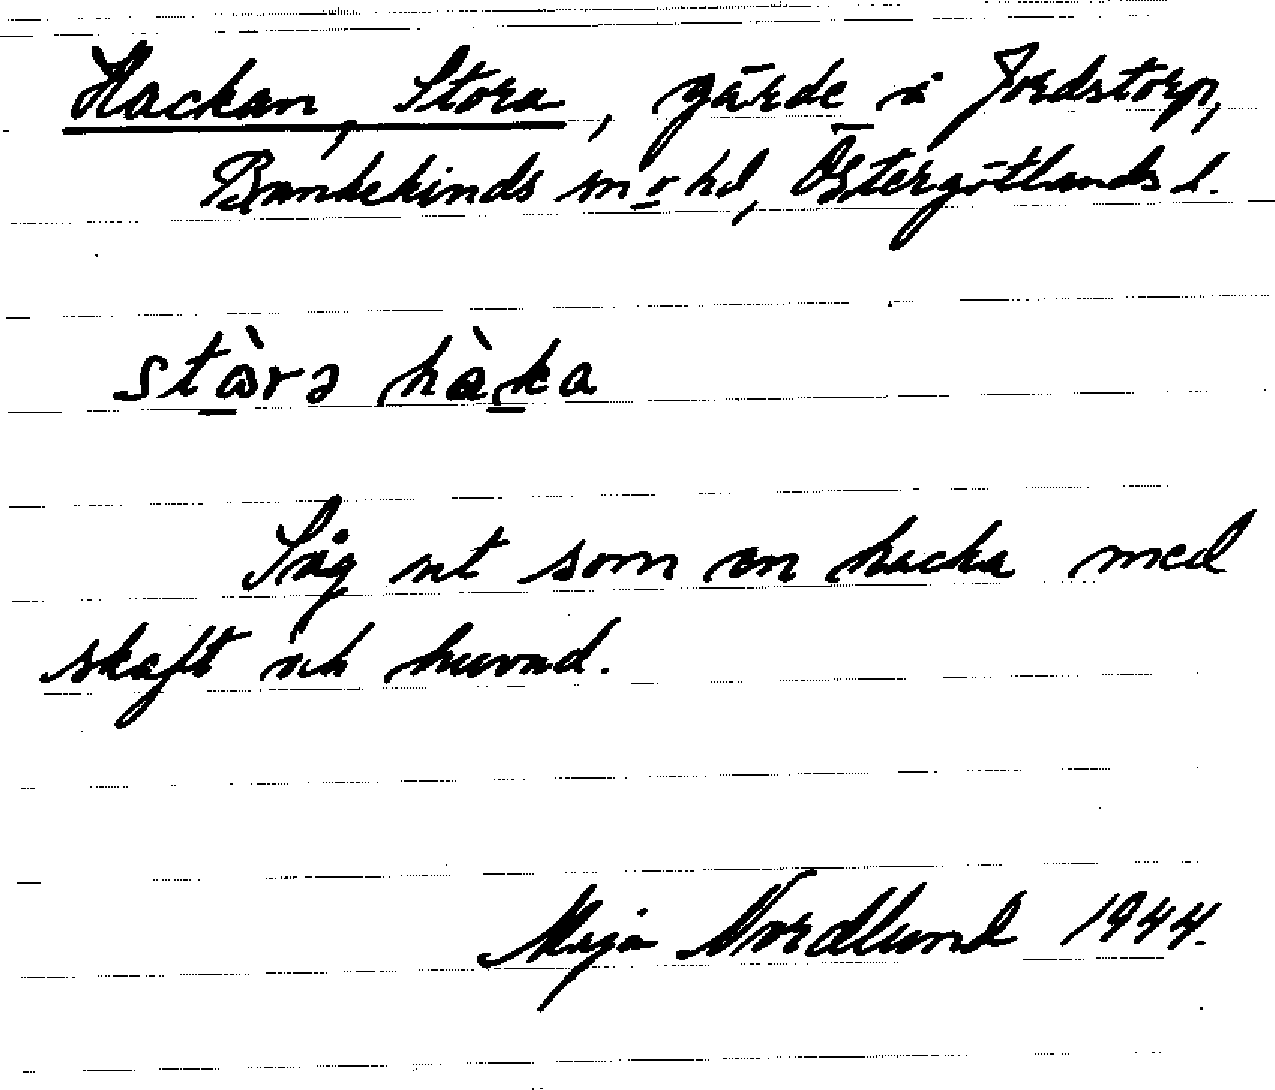 Hackan, Stora, gärde i Jordstorp,
Bankekinds sn o hd, Östergötlands l.
stɷ̀rɔ hàka
Såg ut som en hacka med
skaft och huvud.
Maja Nordlund 1944.